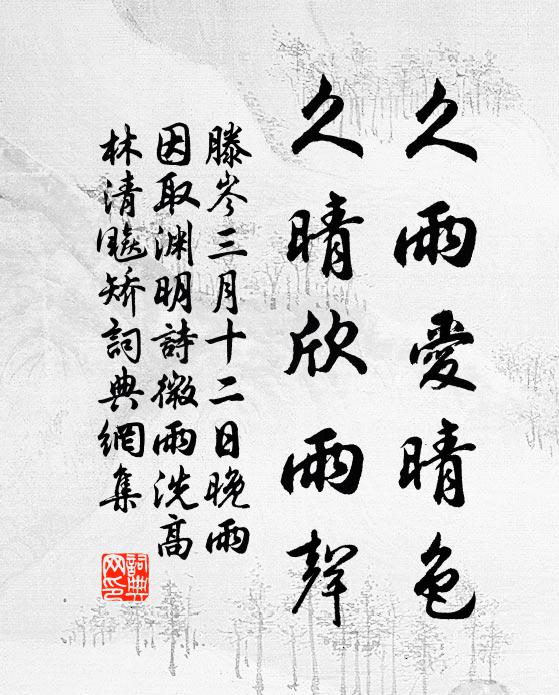 久雨愛晴色
久晴欣雨聲
滕岑三月十二日晚雨
因取渊明詩微雨洗高
林清飈矫詞典網集
詞典
网印